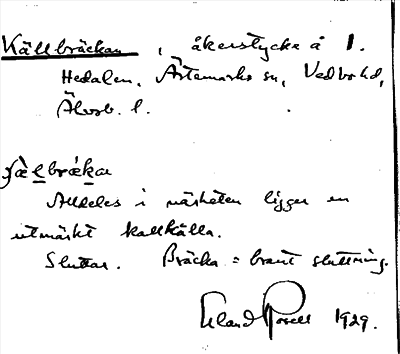 Källbräckan, åkerstycke å 1.
Hedalen, Ärtemarks sn, Vedbo hd,
Älvsb. l.
Alldeles i närheten ligger en
utmärkt kallkälla.
Sluttar. Bräcka = brant sluttning.
Erland Rosell 1929.